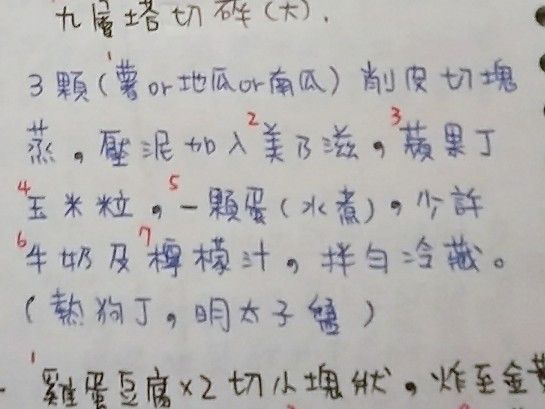 九層塔切碎(大).
1
3顆(薯or地瓜or南瓜)削皮切塊
蒸,壓泥加入2美乃滋,3蘋果丁
4玉米粒,5一顆蛋(水煮),少許
6牛奶及7檸檬汁,拌勻冷藏。
(熱狗丁,明太子醬)
1
雞蛋豆腐x2切小塊狀,炸至金黃